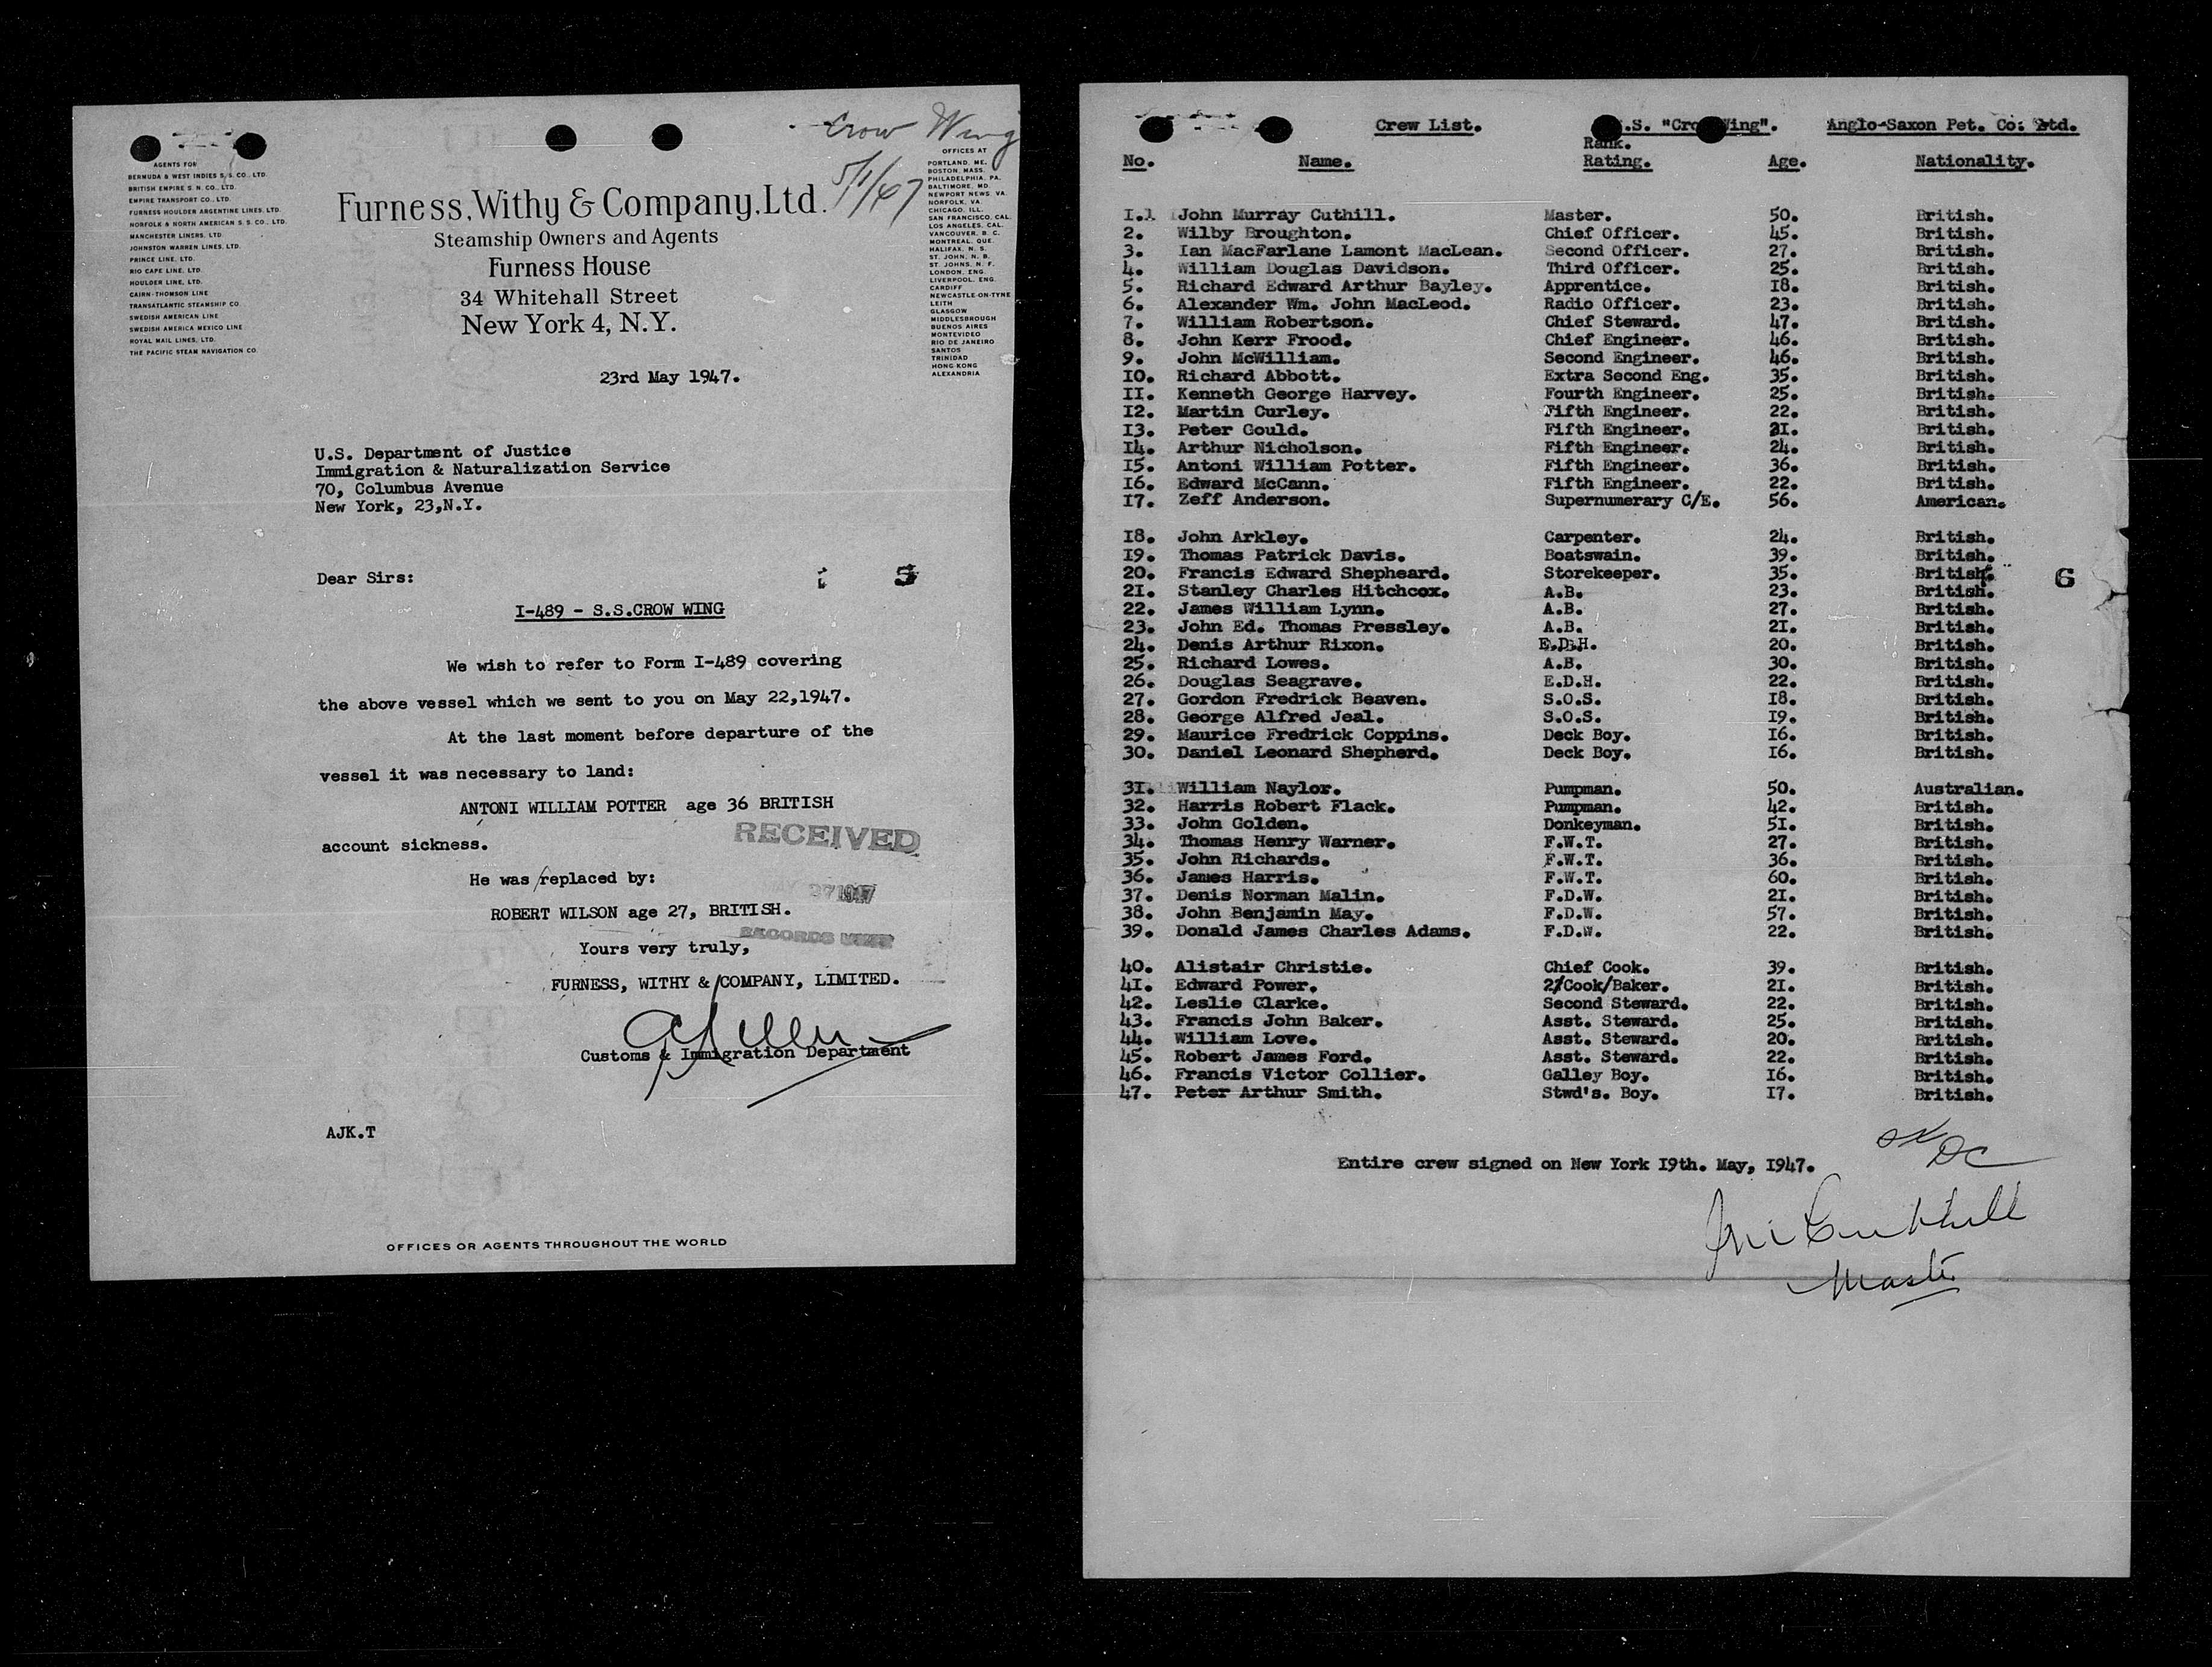 Crow Wing
5/1/47
AGENTS FOR
BERMUDA & WEST INDIES S. S. CO., LTD.
BRITISH EMPIRE S. N. CO., LTD.
EMPIRE TRANSPORT CO., LTD.
FURNESS HOULDER ARGENTINE LINES, LTD.
NORFOLK & NORTH AMERICAN S. S. CO., LTD.
MANCHESTER LINERS, LTD.
JOHNSTON WARREN LINES, LTD.
PRINCE LINE, LTD.
RIO CAPE LINE, LTD.
HOULDER LINE, LTD.
CAIRN-THOMSON LINE
TRANSATLANTIC STEAMSHIP CO.
SWEDISH AMERICAN LINE
SWEDISH AMERICA MEXICO LINE
ROYAL MAIL LINES, LTD.
THE PACIFIC STEAM NAVIGATION CO.
Furness, Withy & Company, Ltd.
Steamship Owners and Agents
Furness House
34 Whitehall Street
New York 4, N.Y.
OFFICES AT
PORTLAND, ME.
BOSTON, MASS.
PHILADELPHIA, PA.
BALTIMORE, MD.
NEWPORT NEWS, VA.
NORFOLK, VA.
CHICAGO, ILL.
SAN FRANCISCO, CAL.
LOS ANGELES, CAL.
VANCOUVER, B. C.
MONTREAL, QUE.
HALIFAX, N. S.
ST. JOHN, N. B.
ST. JOHNS, N. F.
LONDON, ENG.
LIVERPOOL, ENG.
CARDIFF
NEWCASTLE-ON-TYNE
LEITH
GLASGOW
MIDDLESBROUGH
BUENOS AIRES
MONTEVIDEO
RIO DE JANEIRO
SANTOS
TRINIDAD
HONG KONG
ALEXANDRIA
23rd May 1947.
U.S. Department of Justice
Immigration & Naturalization Service
70, Columbus Avenue
New York, 23,N.Y.
Dear Sirs:
5
I-489 - S.S.CROW WING
We wish to refer to Form I-489 covering
the above vessel which we sent to you on May 22,1947.
At the last moment before departure of the
vessel it was necessary to land:
ANTONI WILLIAM POTTER age 36 BRITISH
account sickness.
RECEIVED
He was replaced by:
MAY 27 1947
ROBERT WILSON age 27, BRITISH.
RECORDS UNIT
Yours very truly,
FURNESS, WITHY & COMPANY, LIMITED.
Customs & Immigration Department
AJK.T
OFFICES OR AGENTS THROUGHOUT THE WORLD
Crew List. .S. "Cro Wing". Anglo-Saxon Pet. Co: Ltd.
No. Name. Rank. Rating. Age. Nationality.
I. John Murray Cuthill. Master. 50. British.
2. Wilby Broughton. Chief Officer. 45. British.
3. Ian MacFarlane Lamont MacLean. Second Officer. 27. British.
4. William Douglas Davidson. Third Officer. 25. British.
5. Richard Edward Arthur Bayley. Apprentice. I8. British.
6. Alexander Wm. John MacLeod. Radio Officer. 23. British.
7. William Robertson. Chief Steward. 47. British.
8. John Kerr Frood. Chief Engineer. 46. British.
9. John McWilliam. Second Engineer. 46. British.
IO. Richard Abbott. Extra Second Eng. 35. British.
II. Kenneth George Harvey. Fourth Engineer. 25. British.
I2. Martin Curley. Fifth Engineer. 22. British.
I3. Peter Gould. Fifth Engineer. 2I. British.
I4. Arthur Nicholson. Fifth Engineer. 24. British.
I5. Antoni William Potter. Fifth Engineer. 36. British.
I6. Edward McCann. Fifth Engineer. 22. British.
I7. Zeff Anderson. Supernumerary C/E. 56. American.
I8. John Arkley. Carpenter. 24. British.
I9. Thomas Patrick Davis. Boatswain. 39. British.
20. Francis Edward Shepheard. Storekeeper. 35. British.
6
2I. Stanley Charles Hitchcox. A.B. 23. British.
22. James William Lynn. A.B. 27. British.
23. John Ed. Thomas Pressley. A.B. 2I. British.
24. Denis Arthur Rixon. E.D.H. 20. British.
25. Richard Lowes. A.B. 30. British.
26. Douglas Seagrave. E.D.H. 22. British.
27. Gordon Fredrick Beaven. S.O.S. I8. British.
28. George Alfred Jeal. S.O.S. I9. British.
29. Maurice Fredrick Coppins. Deck Boy. I6. British.
30. Daniel Leonard Shepherd. Deck Boy. I6. British.
3I. William Naylor. Pumpman. 50. Australian.
32. Harris Robert Flack. Pumpman. 42. British.
33. John Golden. Donkeyman. 5I. British.
34. Thomas Henry Warner. F.W.T. 27. British.
35. John Richards. F.W.T. 36. British.
36. James Harris. F.W.T. 60. British.
37. Denis Norman Malin. F.D.W. 2I. British.
38. John Benjamin May. F.D.W. 57. British.
39. Donald James Charles Adams. F.D.W. 22. British.
40. Alistair Christie. Chief Cook. 39. British.
4I. Edward Power. 2/Cook/Baker. 2I. British.
42. Leslie Clarke. Second Steward. 22. British.
43. Francis John Baker. Asst. Steward. 25. British.
44. William Love. Asst. Steward. 20. British.
45. Robert James Ford. Asst. Steward. 22. British.
46. Francis Victor Collier. Galley Boy. I6. British.
47. Peter Arthur Smith. Stwd's. Boy. I7. British.
OK DC
Entire crew signed on New York I9th. May, I947.
Jm Cuthill
Master